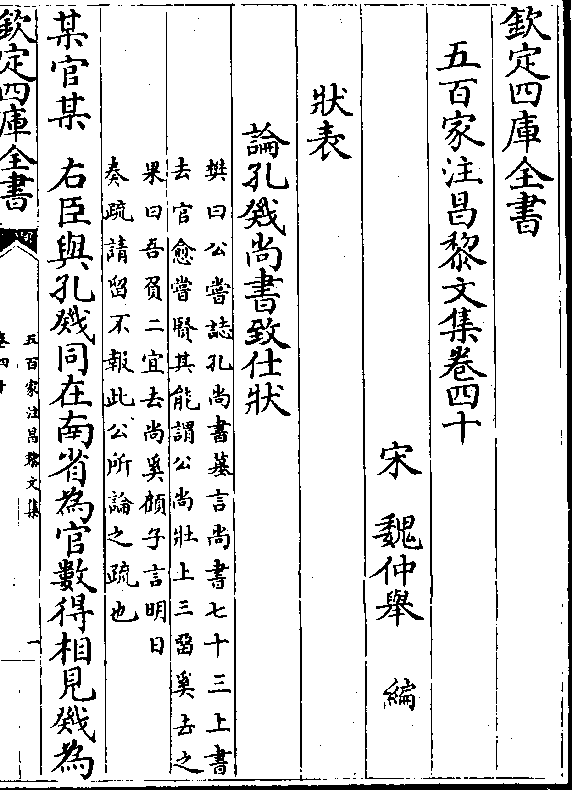 欽定四庫全書
五百家注昌黎文集卷四十
宋 魏仲舉 編
狀表
論孔戣尚書致仕狀
樊曰公嘗誌孔尚書墓言尚書七十三上書
去官愈嘗賢其能謂公尚壯上三留奚去之
果曰吾負二宜去尚奚顧子言明日
奏疏請留不報此公所論之疏也
某官某 右臣與孔戣同在南省為官數得相見戣為
欽定四庫全書
五百家注昌黎文集
卷四十
一